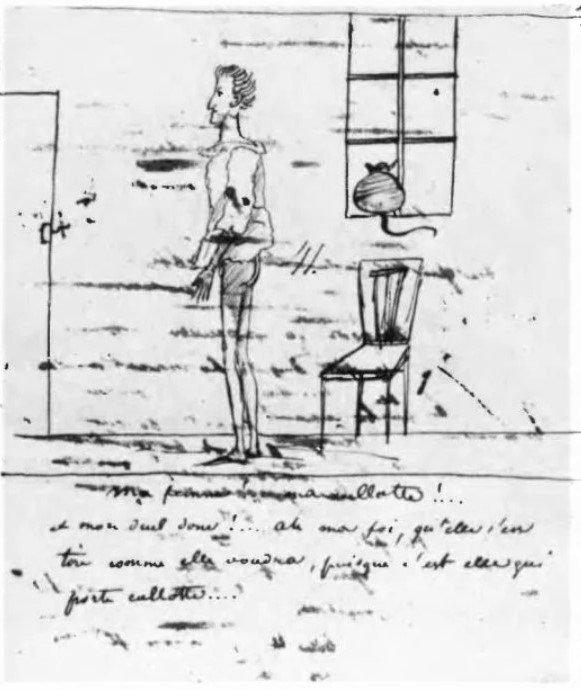 ma femme a ma cullotte !...
et mon duel donc !.... ah ma foi, qu'elle s'en
tire comme elle voudra, puisque c'est elle qui
porte cullotte....